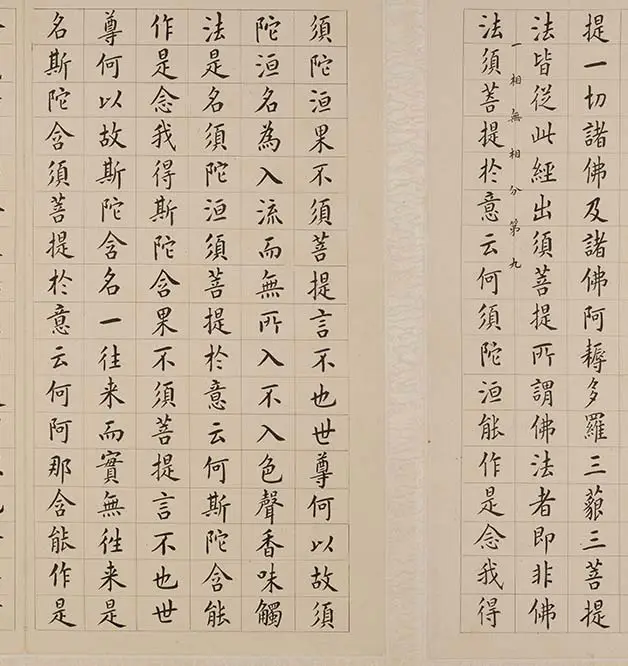 提一切諸佛及諸佛阿耨多羅三藐三菩提
法皆從此經出須菩提所謂佛法者即非佛
一相無相分第九
法須菩提於意云何須陀洹能作是念我得
須陀洹果不須菩提言不也世尊何以故須
陀洹名為入流而無所入不入色聲香味觸
法是名須陀洹須菩提於意云何斯陀含能
作是念我得斯陀含果不須菩提言不也世
尊何以故斯陀含名一往来而實無往来是
名斯陀含須菩提於意云何阿那含能作是